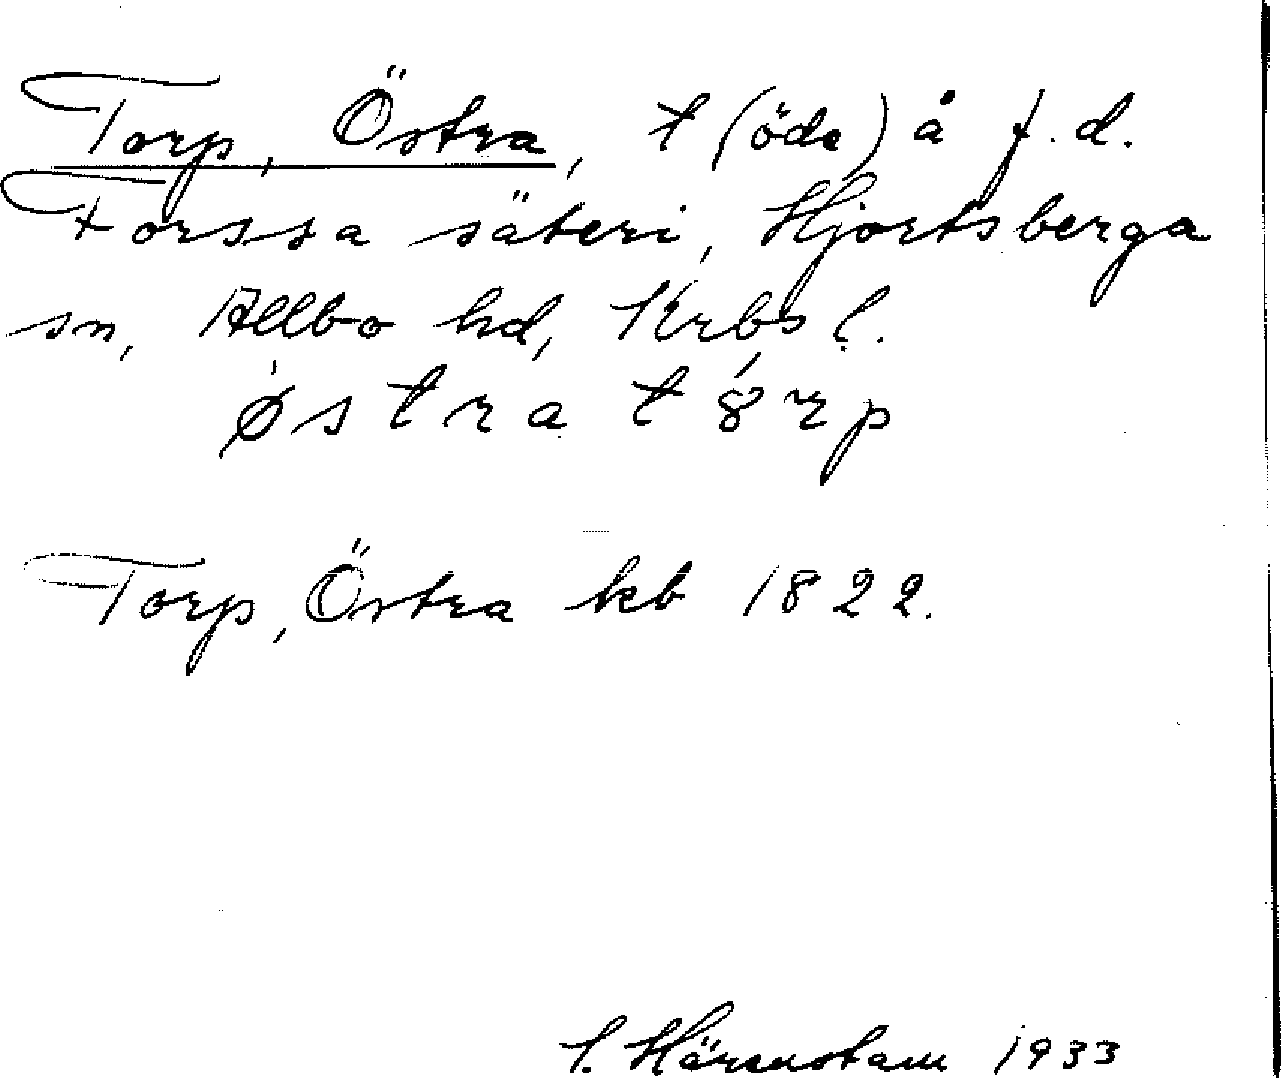 Torp, Östra, t (öde) å f.d.
Forssa säteri, Hjortsberga
sn, Allbo hd, Krbs l.
østra t8rp
Torp, Östra kb 1822.
Härenstam 1933